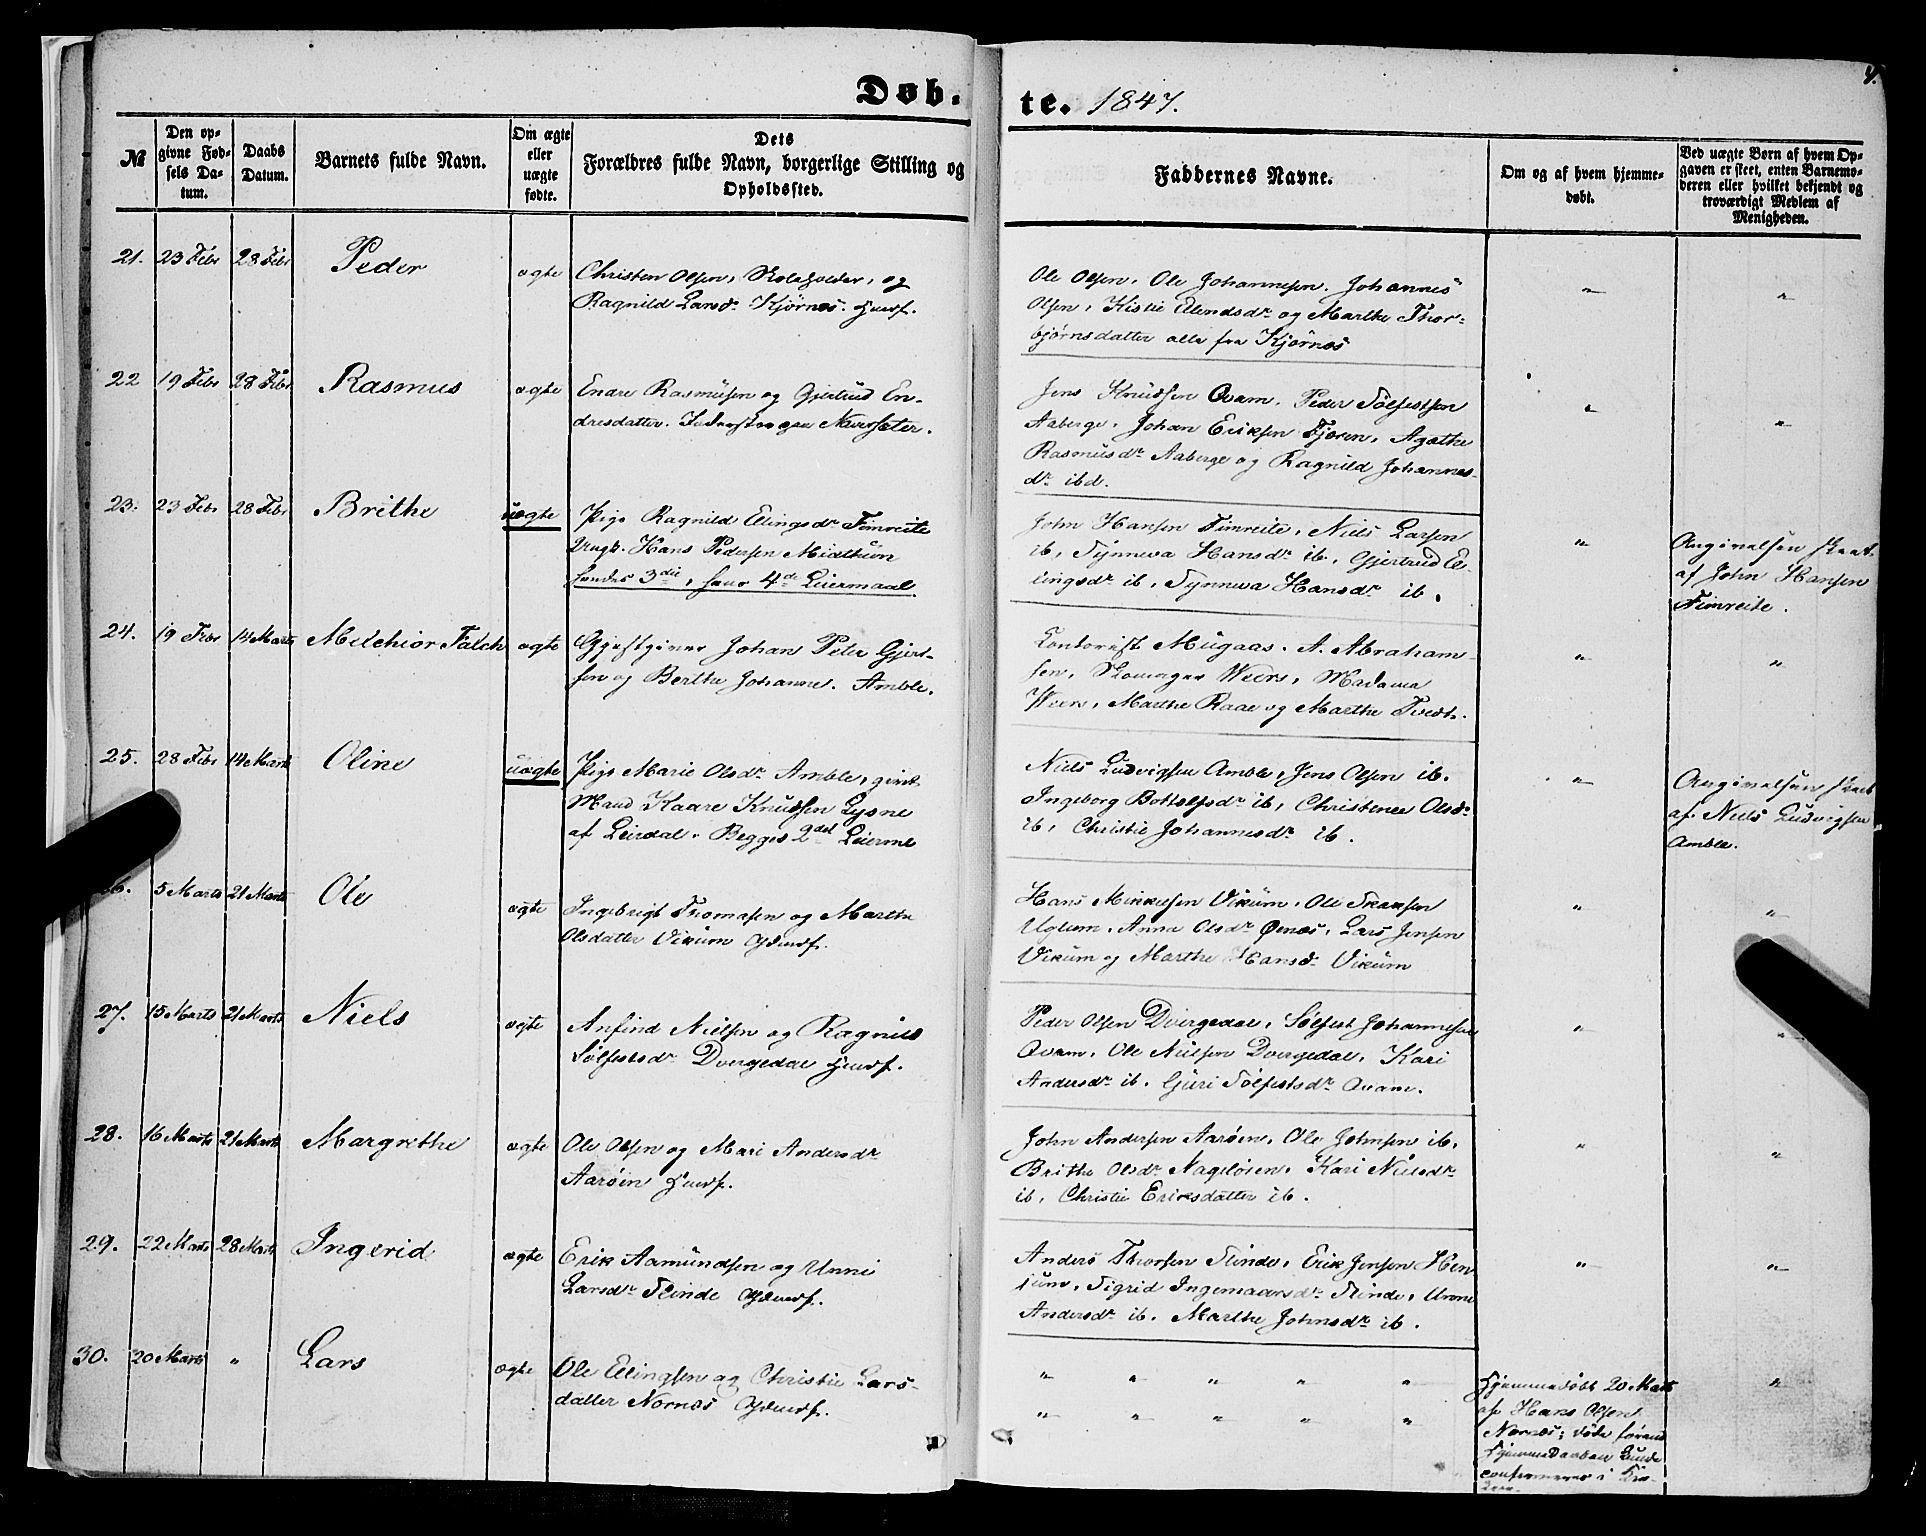 Døb.
te. 1847.
4.
№
Den op-
givne Fød-
sels Da-
tum.
Daabs
Datum.
Barnets fulde Navn.
Om ægte
eller
uægte
fødte.
Dets
Forældres fulde Navn, borgerlige Stilling og
Opholdssted.
Faddernes Navne.
Om og af hvem hjemme-
døbt.
Ved uægte Børn af hvem Op-
gaven er skeet, enten Barnemo-
deren eller hvilket bekjendt og
troværdigt Medlem af
Menigheden.
21. 23 Febr 28 Febr Peder ægte
Christen Olsen, Skoleholder, og
Ragnild Larsdr Kjørnæs. Huusf.
Ole Olsen, Ole Johannesen, Johannes
Olsen, Kistie Ellendsdr og Marthe Thor-
bjørnsdatter alle fra Kjørnæs
" "
22 19 Febr 28 Febr Rasmus ægte
Endre Rasmusen og Gjertrud En-
dresdatter. Naversæter.
Jens Knudsen Qvam, Peder Sølfestsen
Aaberge, Johan Eriksen Fjøren, Agathe
Rasmusdr Aaberge og Ragnild Johannes-
dr ibd.
" "
23. 23 Febr 28 Febr Brithe uægte
Pige Ragnild Ellingsdr Fimreite
Ungk. Hans Pedersen Midthun
hendes 3die, hans 4de Leiermaal.
John Hansen Fimreite, Niels Larsen
ib, Synneva Hansdr ib, Gjertrud El-
lingsdr ib, Synneva Hansdr ib.
"
Angivelsen skeet
af John Hansen
Fimreite.
24. 19 Febr 14 Marts Melchior Falch ægte
Gjestgiver Johan Peter Gjert-
sen og Berthe Johanne. Amble.
Contorist Mugaas. A. Abraham-
sen, Skomager Weers, Madame
Weers, Marthe Raae og Marthe Tvedt.
" "
25. 28 Febr 14 Marts Oline uægte
Pige Marie Olsdr Amble, givt
Mand Kaare Knudsen Lysne
af Leirdal. Begges 2det Leierml
Niels Ludvigsen Amble, Jens Olsen ib.
Ingeborg Bottolfsdr ib, Christense Olsdr
ib, Christie Johannesdr ib.
"
Angivelsen skeet
af Niels Ludvigsen
Amble.
26. 5 Marts 21 Marts Ole ægte
Ingebrigt Thomasen og Marthe
Olsdatter Vikum Gdmdf.
Hans Mikkelsen Vikum, Ole
Uglum, Anna Olsdr Øenæs, Lars Jensen
Vikum og Marthe Hansdr Vikum
" "
27. 15 Marts 21 Marts Niels ægte
Anfind Nielsen og Ragnild
Sølfestsdr Dvergedal Huusf.
Peder Olsen Dvergedal, Sølfest Johannesen
Qvam, Ole Nielsen Dvergedal, Kari
Andersdr ib. Guri Sølfestsdr Qvam.
" "
28. 16 Marts 21 Marts Margrethe ægte
Ole Olsen og Mari Andersdr
Aarøen Huusf.
John Andersen Aarøen, Ole Johnsen ib,
Brithe Olsdr Nagløsen, Kari Nielsdr
ib, Christie Eriksdatter ib.
" "
29. 22 Marts 28 Marts Ingerid ægte
Erik Aamundsen og Unni
Larsdr Slinde Gdmdf.
Anders Thorsen Slinde, Erik Jensen Hen-
jum, Sigrid Ingemaarsdr Slinde, Unni
Andersdr ib. Marthe Johnsdr ib.
" "
30. 20 Marts " Lars ægte
Ole Ellingsen og Christie Lars-
datter Nornæs Gdmdf.
" " " " "
" " " " "
Hjemmedøbt 20 Marts
af Hans Olsen
Nornæs; døde førend
Hjemmedaaben kunde
confirmeres i Kir-
"